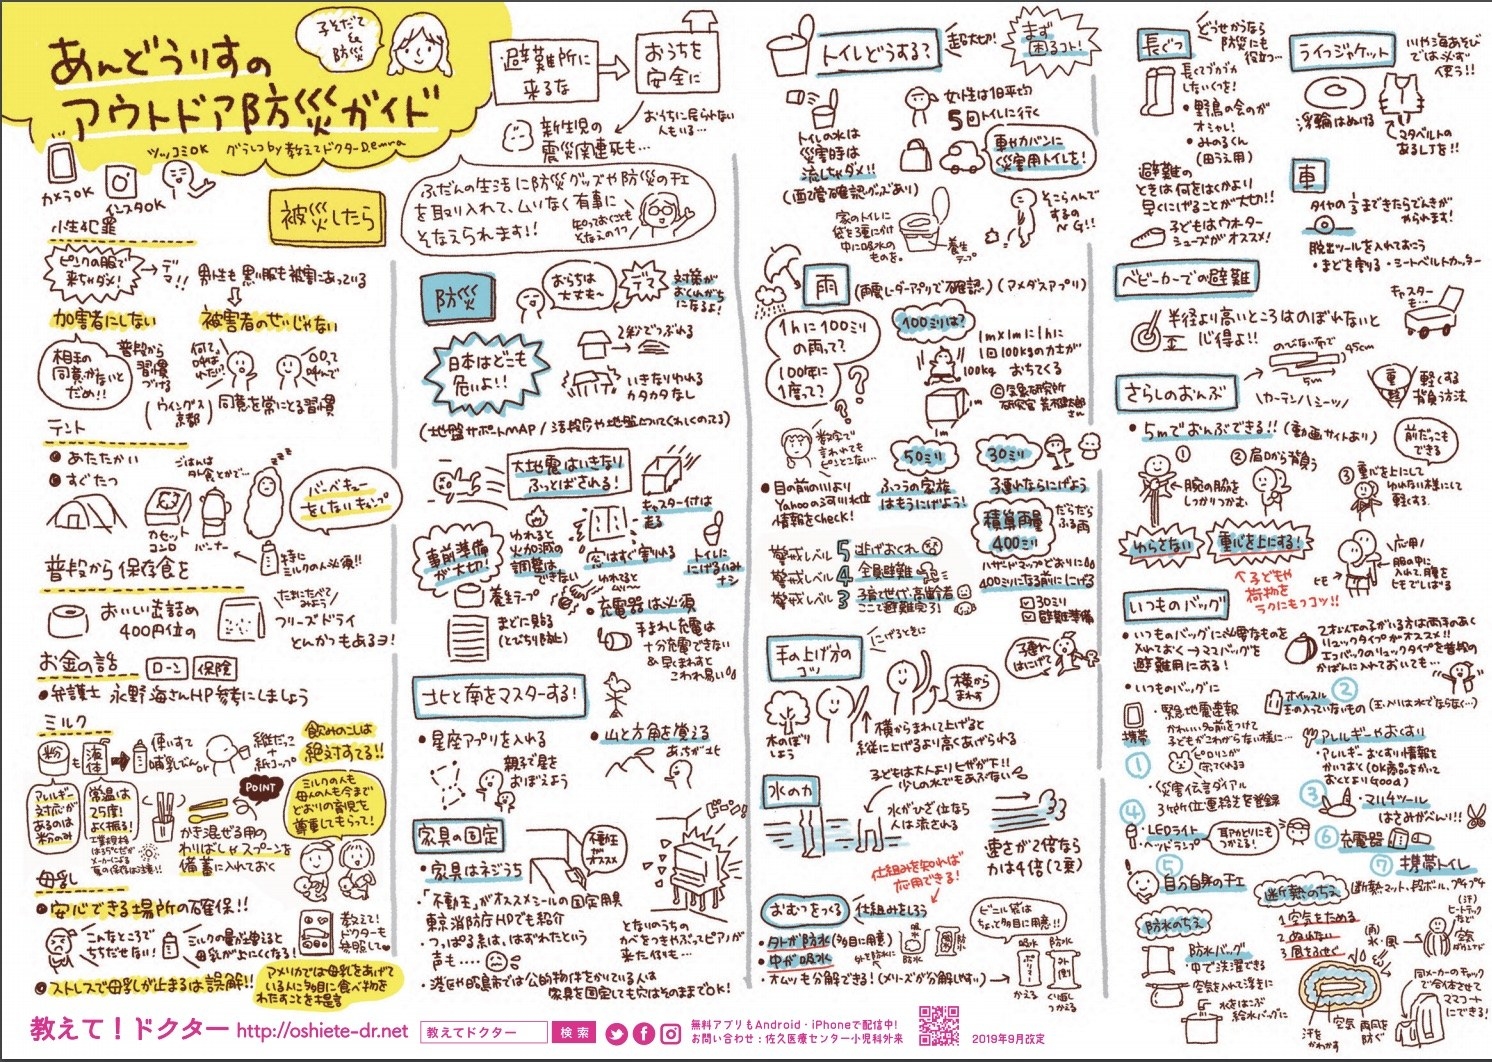 あんどうりすの
アウトドア防災ガイド
子そだて
防災
ツッコミOK
グラレコ by 教えてドクター D.emura
カメラOK
インスタOK
避難所に
来るな
おうちを
安全に
おうちに居られない
人もいる…
新生児の
震災関連死も…
ふだんの生活に防災グッズや防災のチエ
を取り入れて、ムリなく有事に
そなえられます!!
知っておくことも
そなえの1つ
被災したら
小性犯罪
ピンクの服で
来ちゃダメ!
デマ!!
男性も黒い服も被害にあっている
加害者にしない
被害者のせいじゃない
相手の
同意がないと
だめ!!
普段から
習慣
づける
何て
呼ばれ
たい?
○○って
呼んで
(ウィングス
京都)
同意を常にとる習慣
テント
●あたたかい
●すぐたつ
ごはんは
外食とかで…
バーベキュー
をしないキャンプ
カセット
コンロ
バーナー
特に
ミルクの人必須!!
普段から保存食を
おいしい缶詰め
400円位の
たまにたべて
みよう
フリーズドライ
とんかつもあるヨ!
お金の話
ローン
保険
●弁護士 永野海さんHP参考にしましょう
ミルク
飲みのこしは
絶対すてる!!
粉
も
液体
使いすて
哺乳びん
or
紙コップ
アレルギー
対応が
あるのは
粉のみ
常温は
25度!
よく振る!
POINT
かき混ぜる用の
わりばしやスプーンを
備蓄に入れておく
ミルクの人も
母乳の人も今まで
どおりの育児を
尊重してもらう!
母乳
●安心できる場所の確保!!
こんなところで
ちちだせない!
ミルクの量が増えると
母乳が上にくくなる!
教えて!
ドクターも
参照して
●ストレスで母乳が止まるは誤解!!
アメリカでは母乳をあげて
いる人に多目に食べ物を
わたすことを提言
防災
おらちは
大丈夫〜
デマ
対策が
おくれがち
になるよ!
日本はどこも
危いよ!!
2秒でつぶれる
いきなりゆれる
カタカタなし
(地盤サポートMAP/活段層や地盤についてくわしくのってる)
大地震はいきなり
ふっとばされる!
キャスター付は
走る
事前準備
が大切!
ゆれると
火加減の
調整は
できない
窓はすぐ割れる
トイレに
にげるハムナシ
ゆれると
ムリー
養生テープ
まどに貼る
(とびちり防止)
●充電器は必須
手まわし充電は
十分充電できない
&早くまわすと
こわれ易い
北と南をマスターする!
●星座アプリを入れる
●山と方角を覚える
あちが北
親子で星を
おぼえよう
家具の固定
●家具はネジうち
種エ
が
オススメ
ドーン!
・「不動王」がオススメシールの固定用具
東京消防庁HPでも紹介
・つっぱる系は、はずれたという
声も…
となりのうちの
かべをつきやぶってピアノが
来た例も…
・港区や昭島市では公的物件をかりている人は
家具を固定しても穴はそのままでOK!
トイレどうする?
超大切!
まず
困るコト!
トイレの水は
災害時は
流しちゃダメ!!
(配管確認グッズあり)
女性は1日平均
5回トイレに行く
車やカバンに
災害用トイレを!
家のトイレに
袋を2重にかけ
中に吸水の
ものを。
養生
テープ
そこらへんで
するの
NG!!
雨
(雨雲レーダーアプリで確認)(アメダスアプリ)
1hに100ミリ
の雨って?
100年に
1度って?
100ミリは?
1m×1mに1hに
1回100kgの力士が
おちてくる
100kg
1m
1m
©気象研究所
研究官 荒木健太郎
さん
数字で
言われても
ピンとこない…
50ミリ
ふつうの家族
はもうにげよう!
30ミリ
子連れならにげよう
●目の前の川より
Yahooの河川水位
情報をcheck!
積算雨量
400ミリ
だらだら
ふる雨
警戒レベル 5 逃げおくれ
警戒レベル 4 全員避難
警戒レベル 3 子育て世代・高齢者
ここで避難完了!
ハザードマップどおりに
400ミリになる前ににげる
30ミリ
避難準備
手の上げ方の
コツ
にげるときに
子連れ
はにげて
横から
まわす
木のぼり
しよう
横からまわして上げると
縦に上げるより高くあげられる
水の力
子どもは大人よりヒザが下!!
少しの水でもあぶない
水がひざ位なら
人は流される
速さが2倍なら
力は4倍(2乗)
仕組みを知れば
応用できる!
おむつをつくる
仕組みをしろう
・外が防水(多目に用意)
・中が吸水
吸水
外を防水に
防水
ビニル袋は
ちょっと多目に用意!!
・オムツも分解できる!(メリーズが分解しやすい)
吸水
防水
かえる
くり返し
つかえる
長ぐつ
どうせかうなら
防災にも
役立つ…
長くてブカブカ
しないくつを!
・野鳥の会のが
オシャレ!
・みのるくん
(田うえ用)
避難の
ときは何をはくかより
早くにげることが大切!!
子どもはウォーター
シューズがオススメ!
ライフジャケット
川や海あそび
では必ず
使う!!
浮輪はぬける
マタベルトの
あるLJを!!
車
タイヤの1/3まできたらでんきが
やられます!
脱出ツールを入れておこう
・まどを割る・シートベルトカッター
ベビーカーでの避難
半径より高いところはのぼれないと
心得よ!!
キャスター
も…
さらしのおんぶ
のびない布で
45cm
5m
\カーテン/シーツ/
重
軽
軽くする
背負う方法
●5mでおんぶできる!!(動画サイトあり)
前だっこも
できる
①
腕の脇を
しっかりつかむ
②肩口から背負う
③重心を上にして
ゆれない様にして
軽くする
ゆらさない
重心を上にする!
子どもや
荷物を
ラクにもつコツ!!
応用!
服の中に
入れて、腰を
ヒモでしばる
ヒモ
いつものバッグ
●いつものバッグに必要なものを
入れておく→ママバッグを
避難用にする!
2才以下の子がいる方は両手のあく
リュックタイプがオススメ!!
エコバックのリュックタイプを普段の
かばんに入れておいても…
●いつものバッグに
携帯
①
・緊急地震速報
かわいい名前をつけて
子どもがこわがらない様に…
ピロリンが
守ってくれるヨ
・災害伝言ダイアル
3ヶ所位連絡先を登録
ホイッスル ②
玉の入っていないもの(玉入りは水でならなく…)
アレルギーやおくすり
・アレルギー・おくすり情報を
かいておく(OK商品をかいて
おくとよりGood)
③
・マルチツール
はさみがべんり!!
④
・LEDライト
・ヘッドランプ
耳かとりにも
つかえる!
⑥ 充電器
⑤
自分自身のチエ
⑦ 携帯トイレ
断熱のちえ
(断熱マット、段ボール、プチプチ
1.空気をためる
2.ぬれない
3.風をふせぐ
防水のちえ
・防水バッグ
中で洗濯できる
・空気を入れて浮きに
・水をはこぶ
給水バッグに
雨
水・風
(汗)
ヒートテック
など
空気
汗を
かわかす
空気
雨風を
防ぐ
同メーカーのチャック
で合体させて
ママコート
にできる!
教えて!ドクター http://oshiete-dr.net
教えてドクター 検索
無料アプリもAndroid・iPhoneで配信中!
お問い合わせ:佐久医療センター小児科外来
2019年9月改定